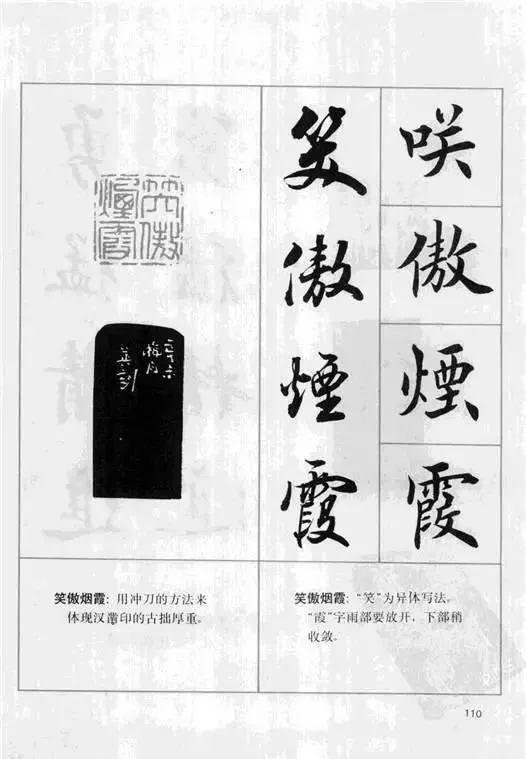 咲
傲
煙
霞
笑
傲
煙
霞
笑傲煙霞
笑傲烟霞：用冲刀的方法来
体现汉凿印的古拙厚重。
笑傲烟霞：“笑”为异体写法。
“霞”字雨部要放开，下部稍
收敛。
110